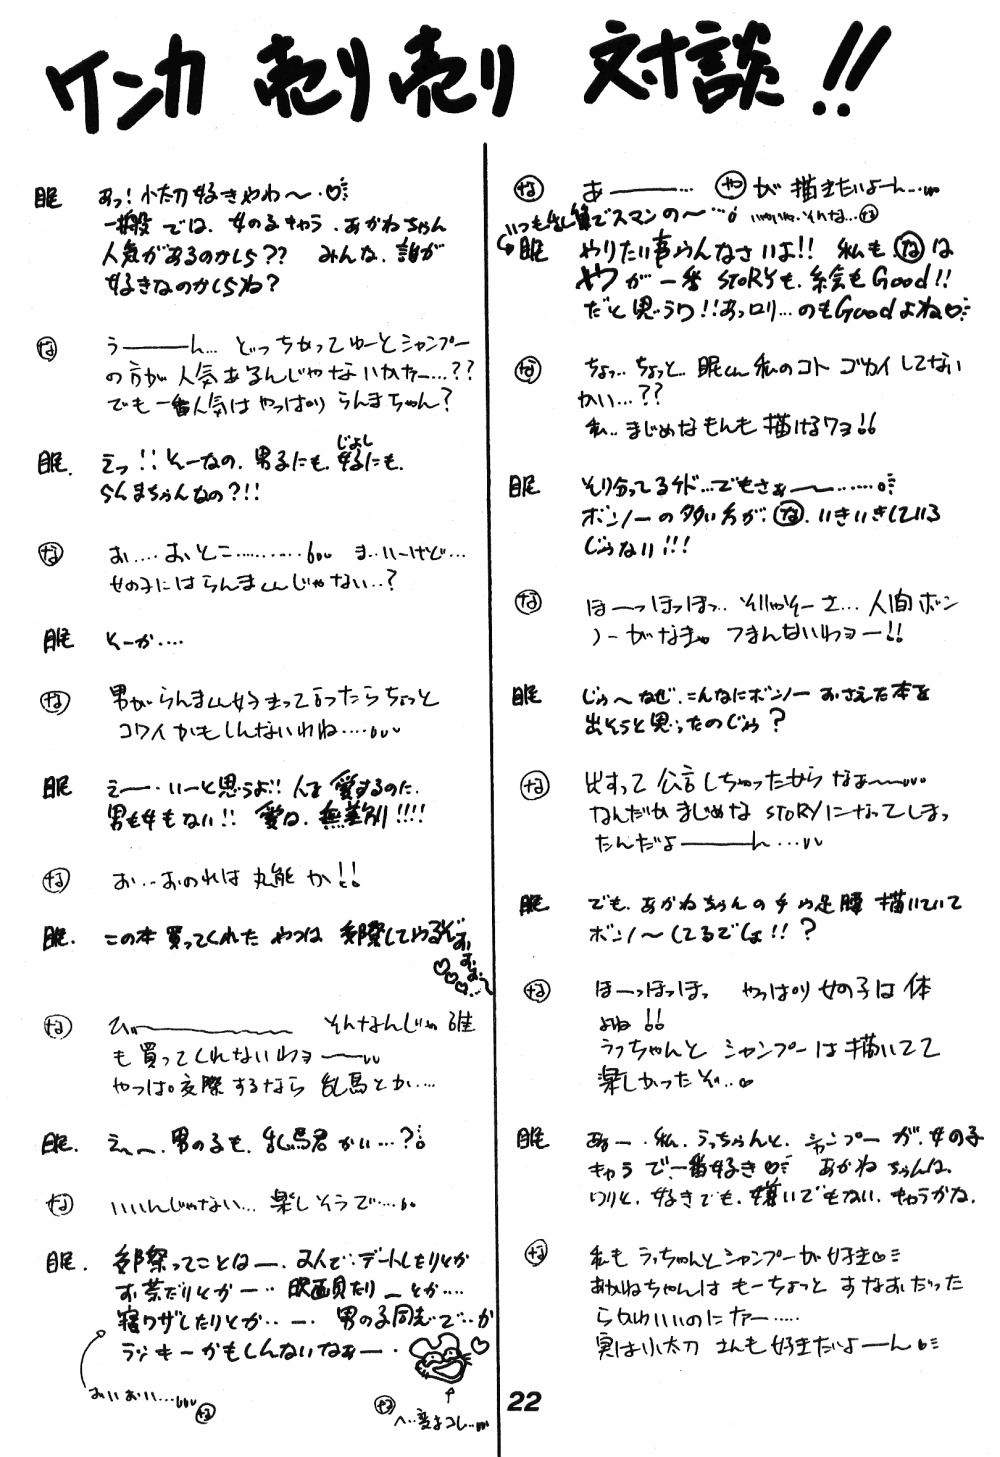 ケンカ売り売り 対談!!
な あ———… やが描きたいよーん…
いつも乱筆でスマンの〜… いやいや、それな… な
眠 やりたい事やんなさいよ!! 私もなは
やが一番STORYも、絵もGood!!
だと思うワ!!あっロリ…のもGoodよね♡
な ちょっ…ちょっと… 眠くん私のコト ゴカイしてない
かい…??
私… まじめなもんも描けるワヨ!!
眠 そり分ってるケド…でもさぁ—〜……
ボンノーの多い方が、な、いきいきしている
じゃない!!!
な ほーっほっほっ… そりゃそーさ… 人間ボン
ノーがなきゃ つまんないわョー!!
眠 じゃ〜なぜ、こんなにボンノーおさえた本を
出そうと思ったのじゃ?
な 出すって公言しちゃったからなぁ〜
なんだかまじめなSTORYになってしまっ
たんだよ———ん…
眠 でも、あかねちゃんの手や足腰描いていて
ボンノ〜してるでしょ!!?
な ほーっほっほっ やっぱり女の子は体
よね!!
うっちゃんとシャンプーは描いてて
楽しかったぞ…♡
眠 あぁー、私、うっちゃんと、シャンプーが、女の子
キャラで一番好き♡ あかねちゃんは、
わりと、好きでも、嫌いでもない、キャラかな、
な 私もうっちゃんとシャンプーが好き♡
あかねちゃんはもーちょっとすなおだった
らかわいいのにナァー……
実は小太刀さんも好きだよーん♡
眠 あっ!小太刀好きやわ〜・♡
一般では、女の子キャラ、あかねちゃん
人気があるのかしら?? みんな、誰が
好きなのかしらね?
な う———ん… どっちかってゆーとシャンプー
の方が人気あるんじゃないかナー…??
でも一番人気はやっぱりらんまちゃん?
眠. えっ!!そーなの、男子にも、女子にも、
じょし
らんまちゃんなの?!!
な お…. おとこ……… ま…いーけど…
女の子にはらんまくんじゃない…?
眠 そーか….
な 男がらんまくん好きって言ったらちょっと
コワイかもしんないわね….
眠 えー・いーと思うよ!! 人を愛するのに、
男も女もない!! 愛は、無差別!!!!
な お…おのれは丸熊か!!
眠. この本買ってくれたやつは 交際してやるぞぉぉぉぉ〜
♡♡♡
な ひぃ〜 そんなんじゃ誰
も買ってくれないわョ—
やっぱ交際するなら乱馬とか….
眠. え〜、男の子も、乱馬君かい…?
な いいんじゃない… 楽しそうで…
眠. 交際ってことはー、2人で・デートしたりとか
お茶だりとかー・・ 映画見たりーとか….
寝ワザしたりとか・・ー・ 男の子同志・で・・か
ラッキーかもしんないなぁー・・
おいおい… な
な へ…変なコレ…
22